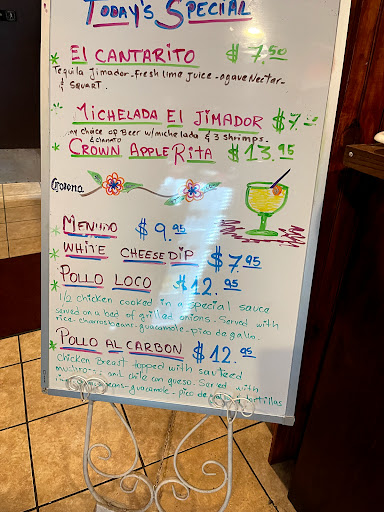 TODAY'S SPECIAL
El CANTARITO $7.50
Tequila Jimador-fresh lime juice-agave Nectar-
& SQUART.
MICHELADA El JIMADOR $7.
choice of Beer w/michelada & 3 shrimps.
& clamato
CROWN APPLE RITA $13.95
Corona
MENUDO $9.95
WHITE CHEESE DIP $7.95
POLLO LOCO $12.95
1/2 chicken cooked in a special sauce
served on a bed of grilled onions. Served with
rice-charros beans-guacamole-pico de gallo.
POLLO AL CARBON $12.95
Chicken Breast topped with sauteed
mushrooms and chile con queso. Served with
beans-guacamole-pico de tortillas